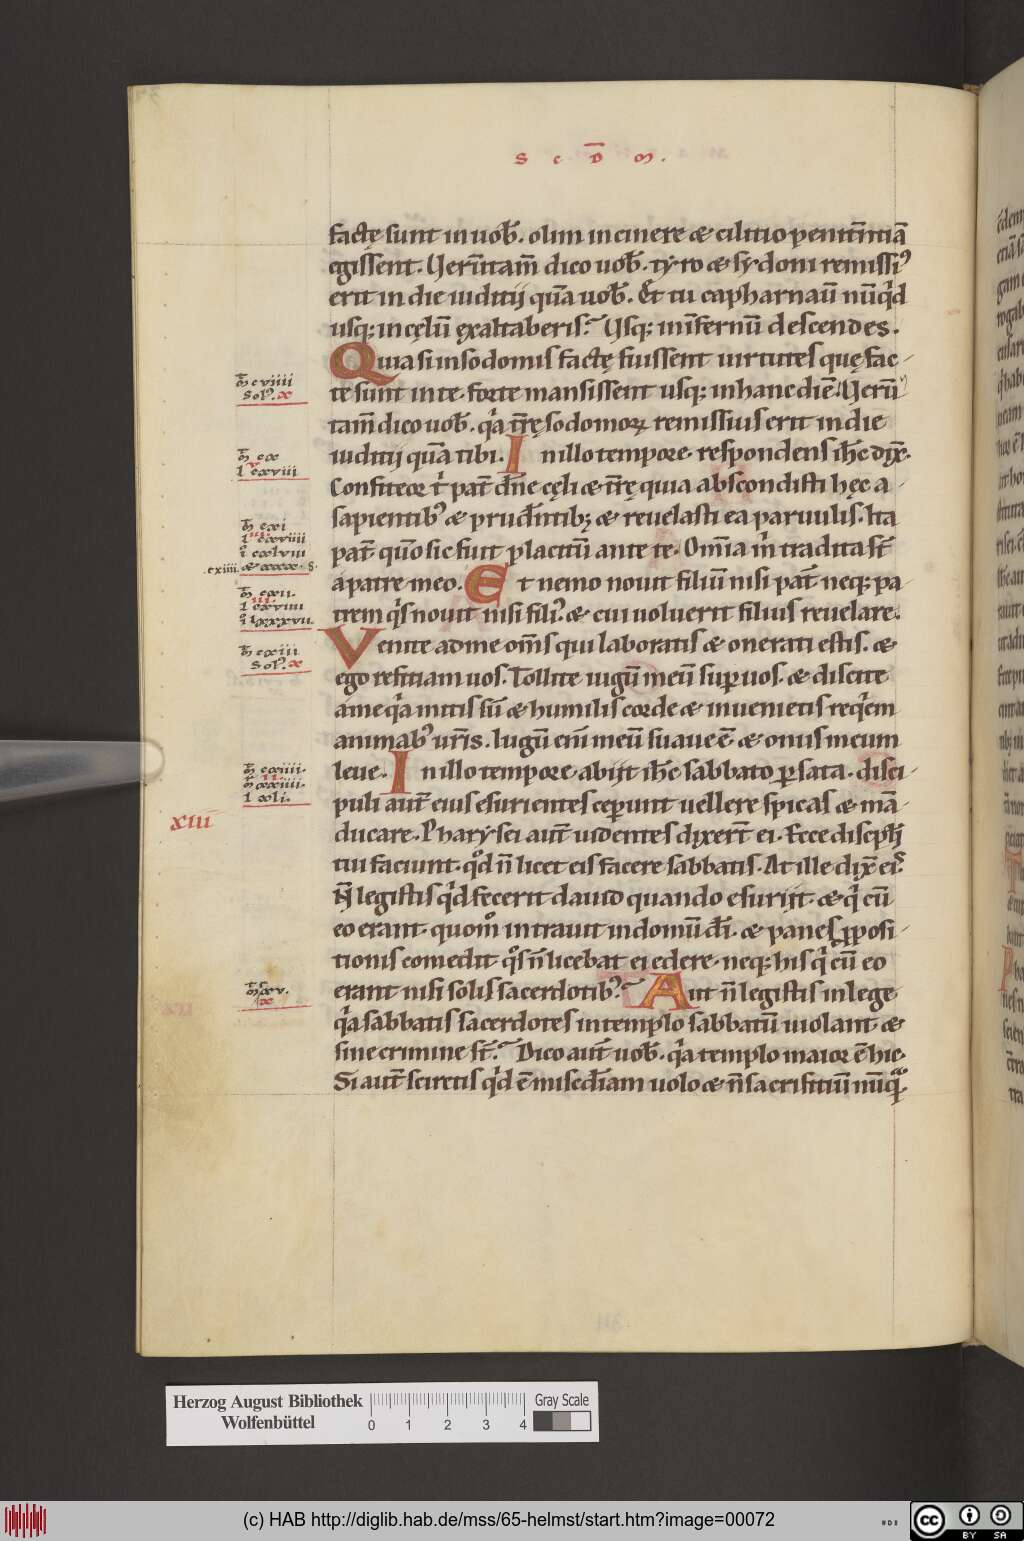 S C D̅ M.
factę sunt in uob̅. olim in cinere & cilitio penitn̅tiā
egissent. Ueru̅tam̅ dico uob̅. tyro & sydoni remissi⁹
erit in die iuditij quā uob̅. Et tu capharnaū nūq̍d
usq; in cęlū exaltaberis? Usq; in infernū descendes.
Quia si in sodomis factę fuissent uirtutes quę fac-
te sunt in te. forte mansissent usq; in hanc diē. Uerū
tam̅ dico uob̅. q̍a tr̅ę sodomoꝝ remissius erit in die
iuditij quā tibi. In illo tempore. respondens ih̅c dix̅.
Confiteor t̍ pat̅ dn̅e cęli & tr̅ę quia abscondisti hęc a
sapientib⁹ & prud̅ntib; & reuelasti ea paruulis. Ita
pat̅ quo̅ sic fuit placitū ante te. Om̅ia m̍ tradita st̅
a patre meo. Et nemo nouit filiū nisi pat̅ neq; pa
trem q̍s nouit nisi fili⁹. & cui uoluerit filius reuelare.
Venite ad me om̅s qui laboratis & onerati estis. &
ego refitiam uos. Tollite iugū meū sup̱ uos. & discite
a me q̍a mitis sū & humilis corde & inuenietis req̍em
animab⁹ ur̅is. Iugū eni̅ meū suaue ē & onus meum
leue. In illo tempore. abijt ih̅c sabbato p̱ sata. disci-
puli aut̅ eius esurientes cep̱unt uellere spicas & mā-
ducare. Pharysei aut̅ uidentes dixer̅t ei. Ecce discipl̅i
tui faciunt. qd̅ n̅ licet eis facere sabbatis. At ille dix̅ eis.
N̅ legistis q̍d fecerit dauid quando esurijt. & q̍ cū
eo erant. quom̊ intrauit in domū di̅. & panes p̱posi-
tionis comedit q̊s n̅ licebat ei edere. neq; his q̍ cū eo
erant nisi solis sacerdotib⁹? Aut n̅ legistis in lege
q̍a sabbatis sacerdotes in templo sabbatū uiolant &
sine crimine st̅? Dico aut̅ uob̅. q̍a templo maior ē hic.
Si aut̅ sciretis q̍d ē miscd̅iam uolo & n̅ sacrifitiū nūq̱ᵃ
m̅ cviiii
Sol⁹. x
m̅ cx
l cxviii
m̅ cxi
l cxviiii
m̅ cxii.
m̅ cxiii
Sol⁹. x
m̅ cxiiii.
m̅ xxiiii.
l xli.
XIII
m̅ cxv.
x
Herzog August Bibliothek
Wolfenbüttel
0 1 2 3 4
Gray Scale
(c) HAB http://diglib.hab.de/mss/65-helmst/start.htm?image=00072
cc BY SA